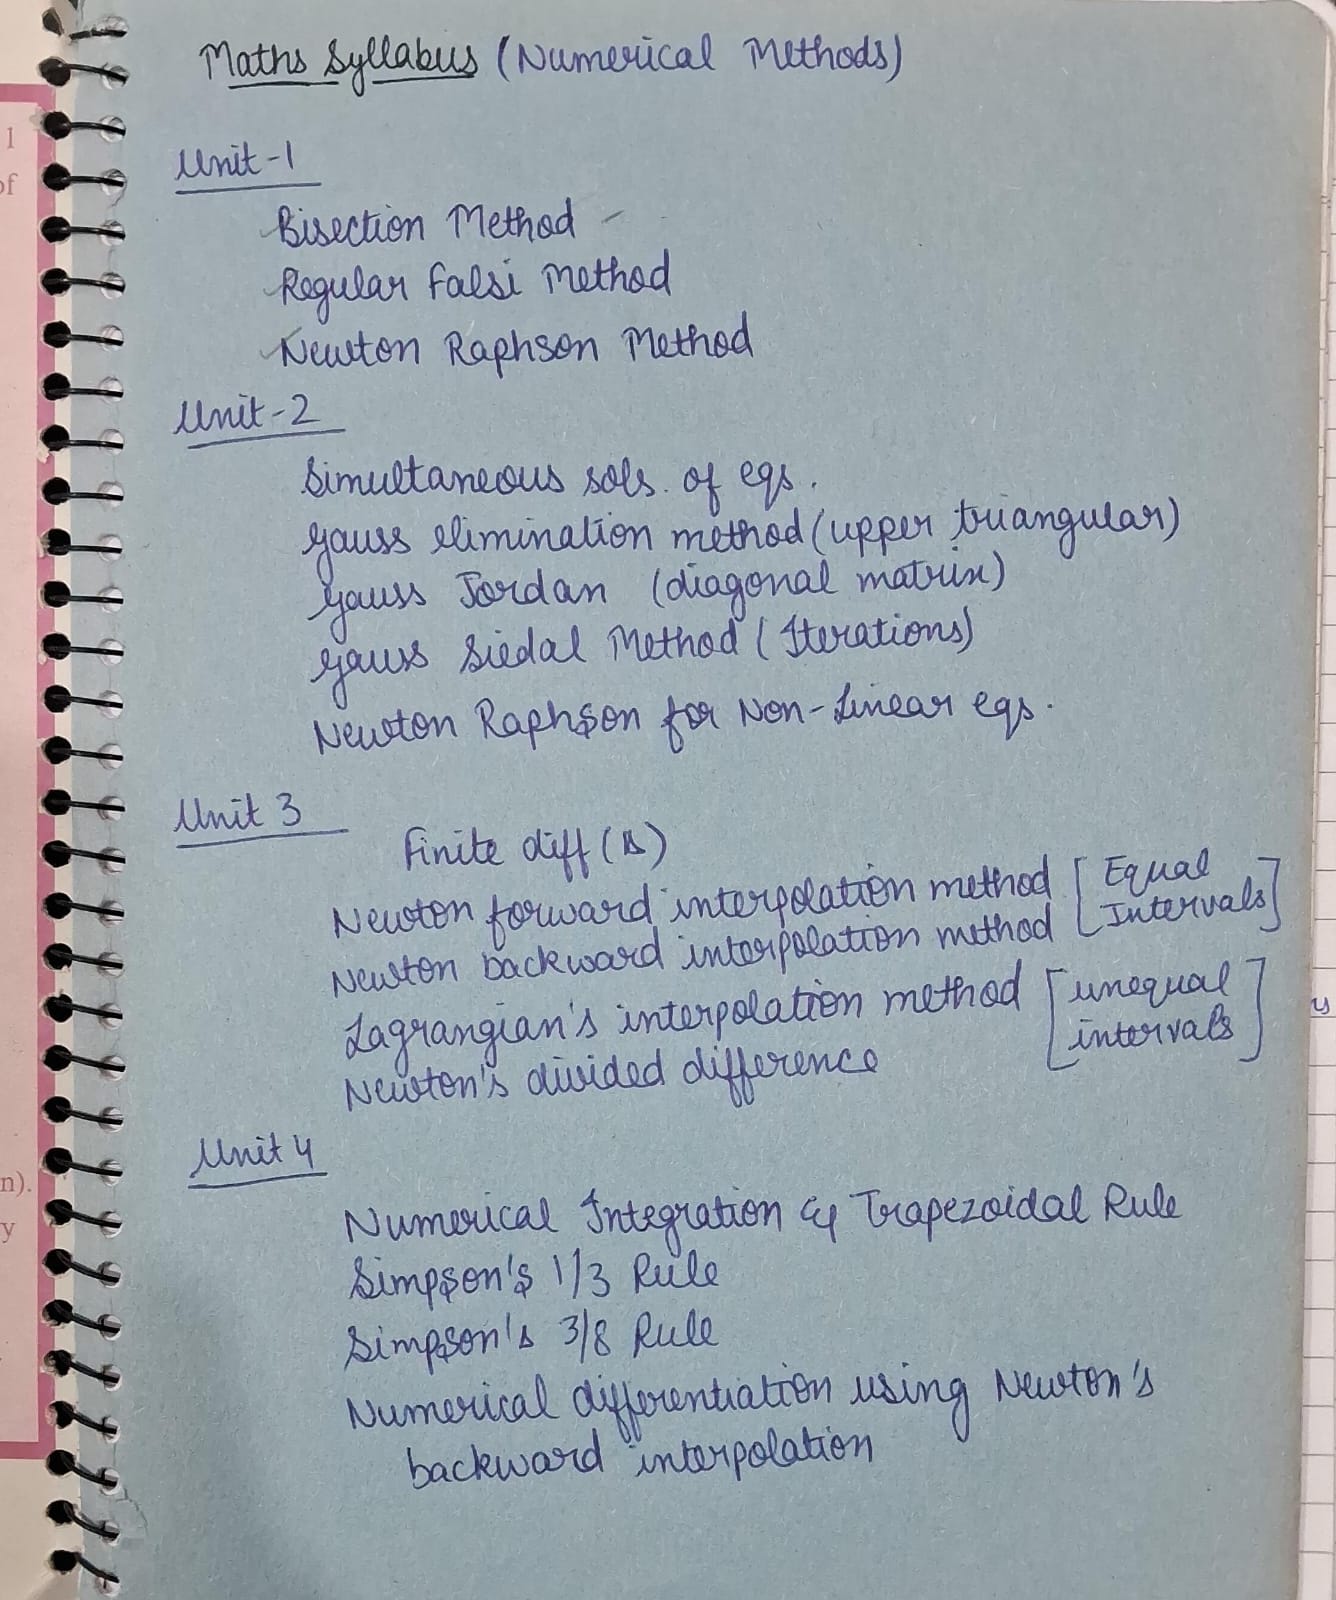 Maths Syllabus (Numerical Methods)
Unit-1
Bisection Method
Regular Falsi Method
Newton Raphson Method
Unit-2
Simultaneous sols. of eqs.
Gauss elimination method (upper triangular)
Gauss Jordan (diagonal matrix)
Gauss Siedal Method (Iterations)
Newton Raphson for Non-Linear eqs.
Unit 3
Finite diff (Δ)
Newton forward interpolation method [Equal
Newton backward interpolation method Intervals]
Lagrangian's interpolation method [unequal
intervals]
Newton's divided difference
Unit 4
Numerical Integration & Trapezoidal Rule
Simpson's 1/3 Rule
Simpson's 3/8 Rule
Numerical differentiation using Newton's
backward interpolation
1
of
n).
y
y